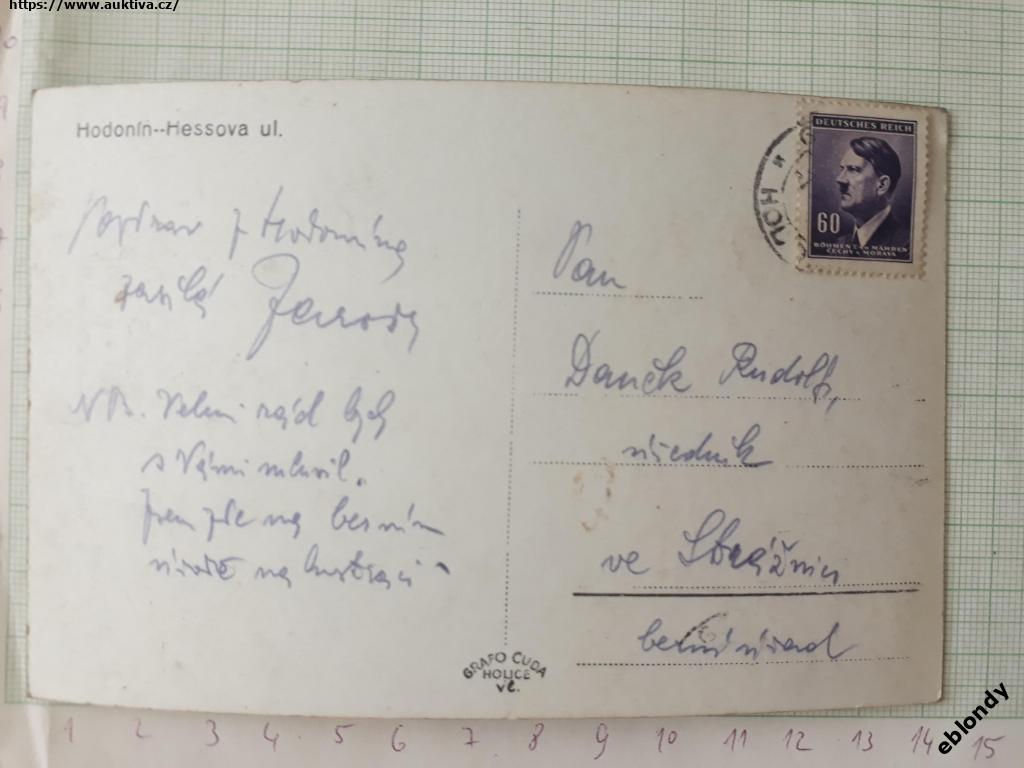 https://www.auktiva.cz/
Hodonín--Hessova ul.
DEUTSCHES REICH
60
BÖHMEN UND MÄHREN
ČECHY A MORAVA
Pozdrav z Hodonína
zasílá
NB. Velmi rád bych
s Vámi mluvil.
Jsem zde na berním
úřadě na
Pan
Daněk Rudolf,
úředník
ve Strážnici
berní úřad
GRAFO ČUDA
HOLICE
1 2 3 4 5 6 7 8 9 10 11 12 13 14 15
eblondy